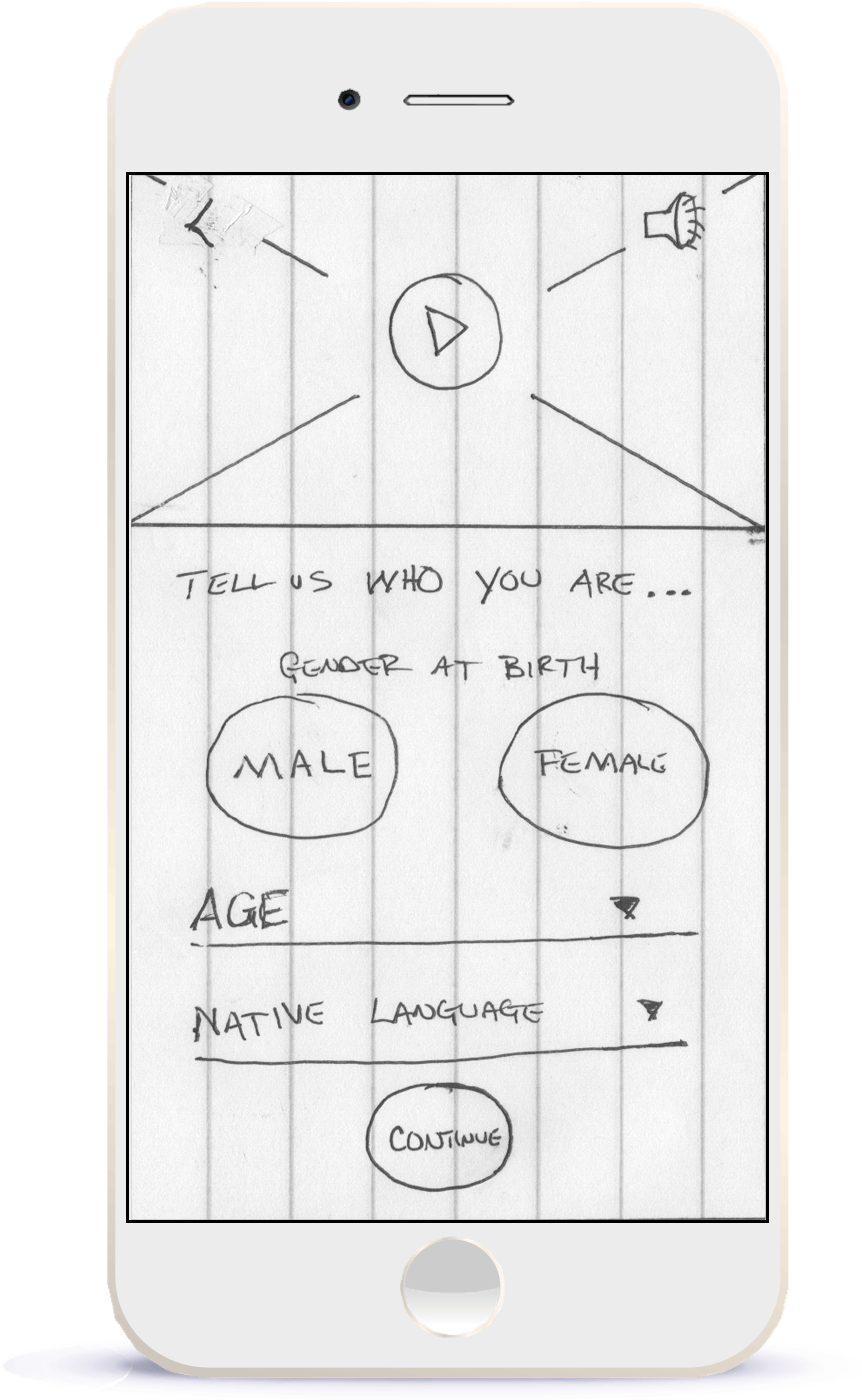 TELL US WHO YOU ARE...
GENDER AT BIRTH
MALE
FEMALE
AGE
NATIVE LANGUAGE
CONTINUE